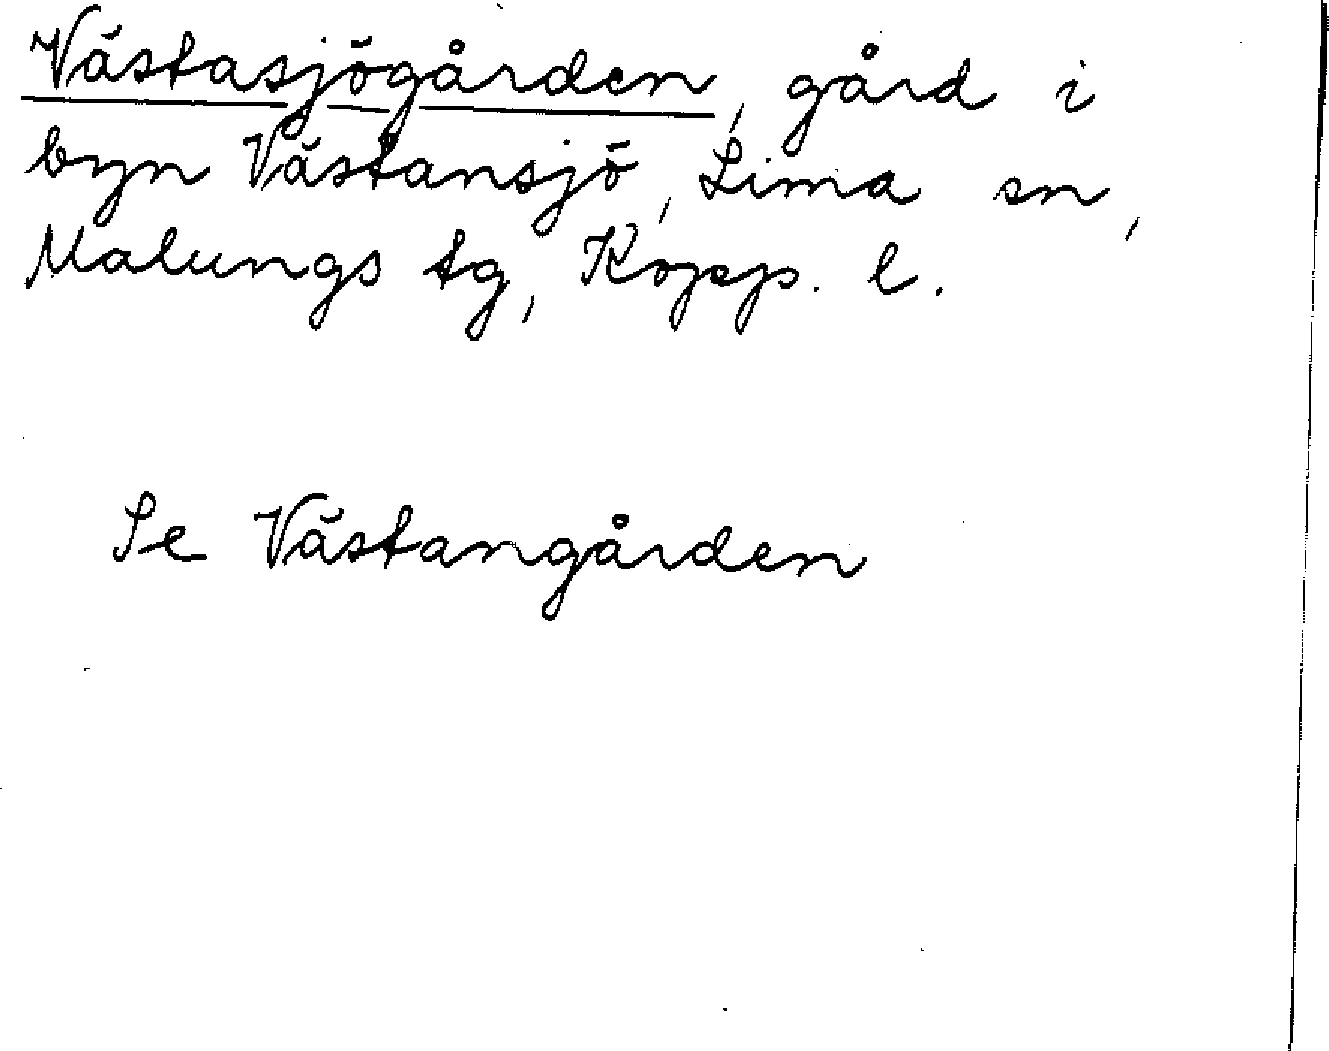 Västasjögården, gård i
byn Västansjö, Lima sn,
Malungs tg, Kopp. l.
Se Västangården